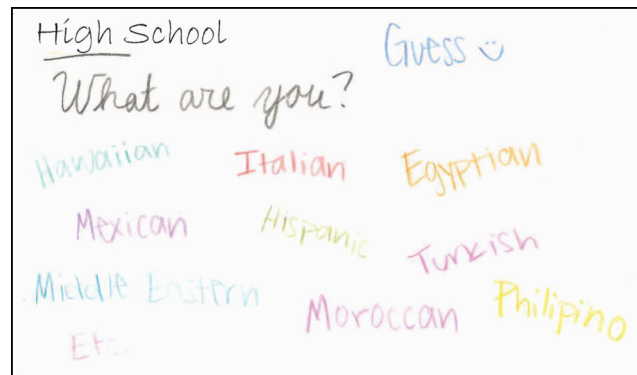 High School
Guess
What are you?
Hawaiian Italian Egyptian
Mexican Hispanic Turkish
Middle Eastern Moroccan Philipino
Etc.